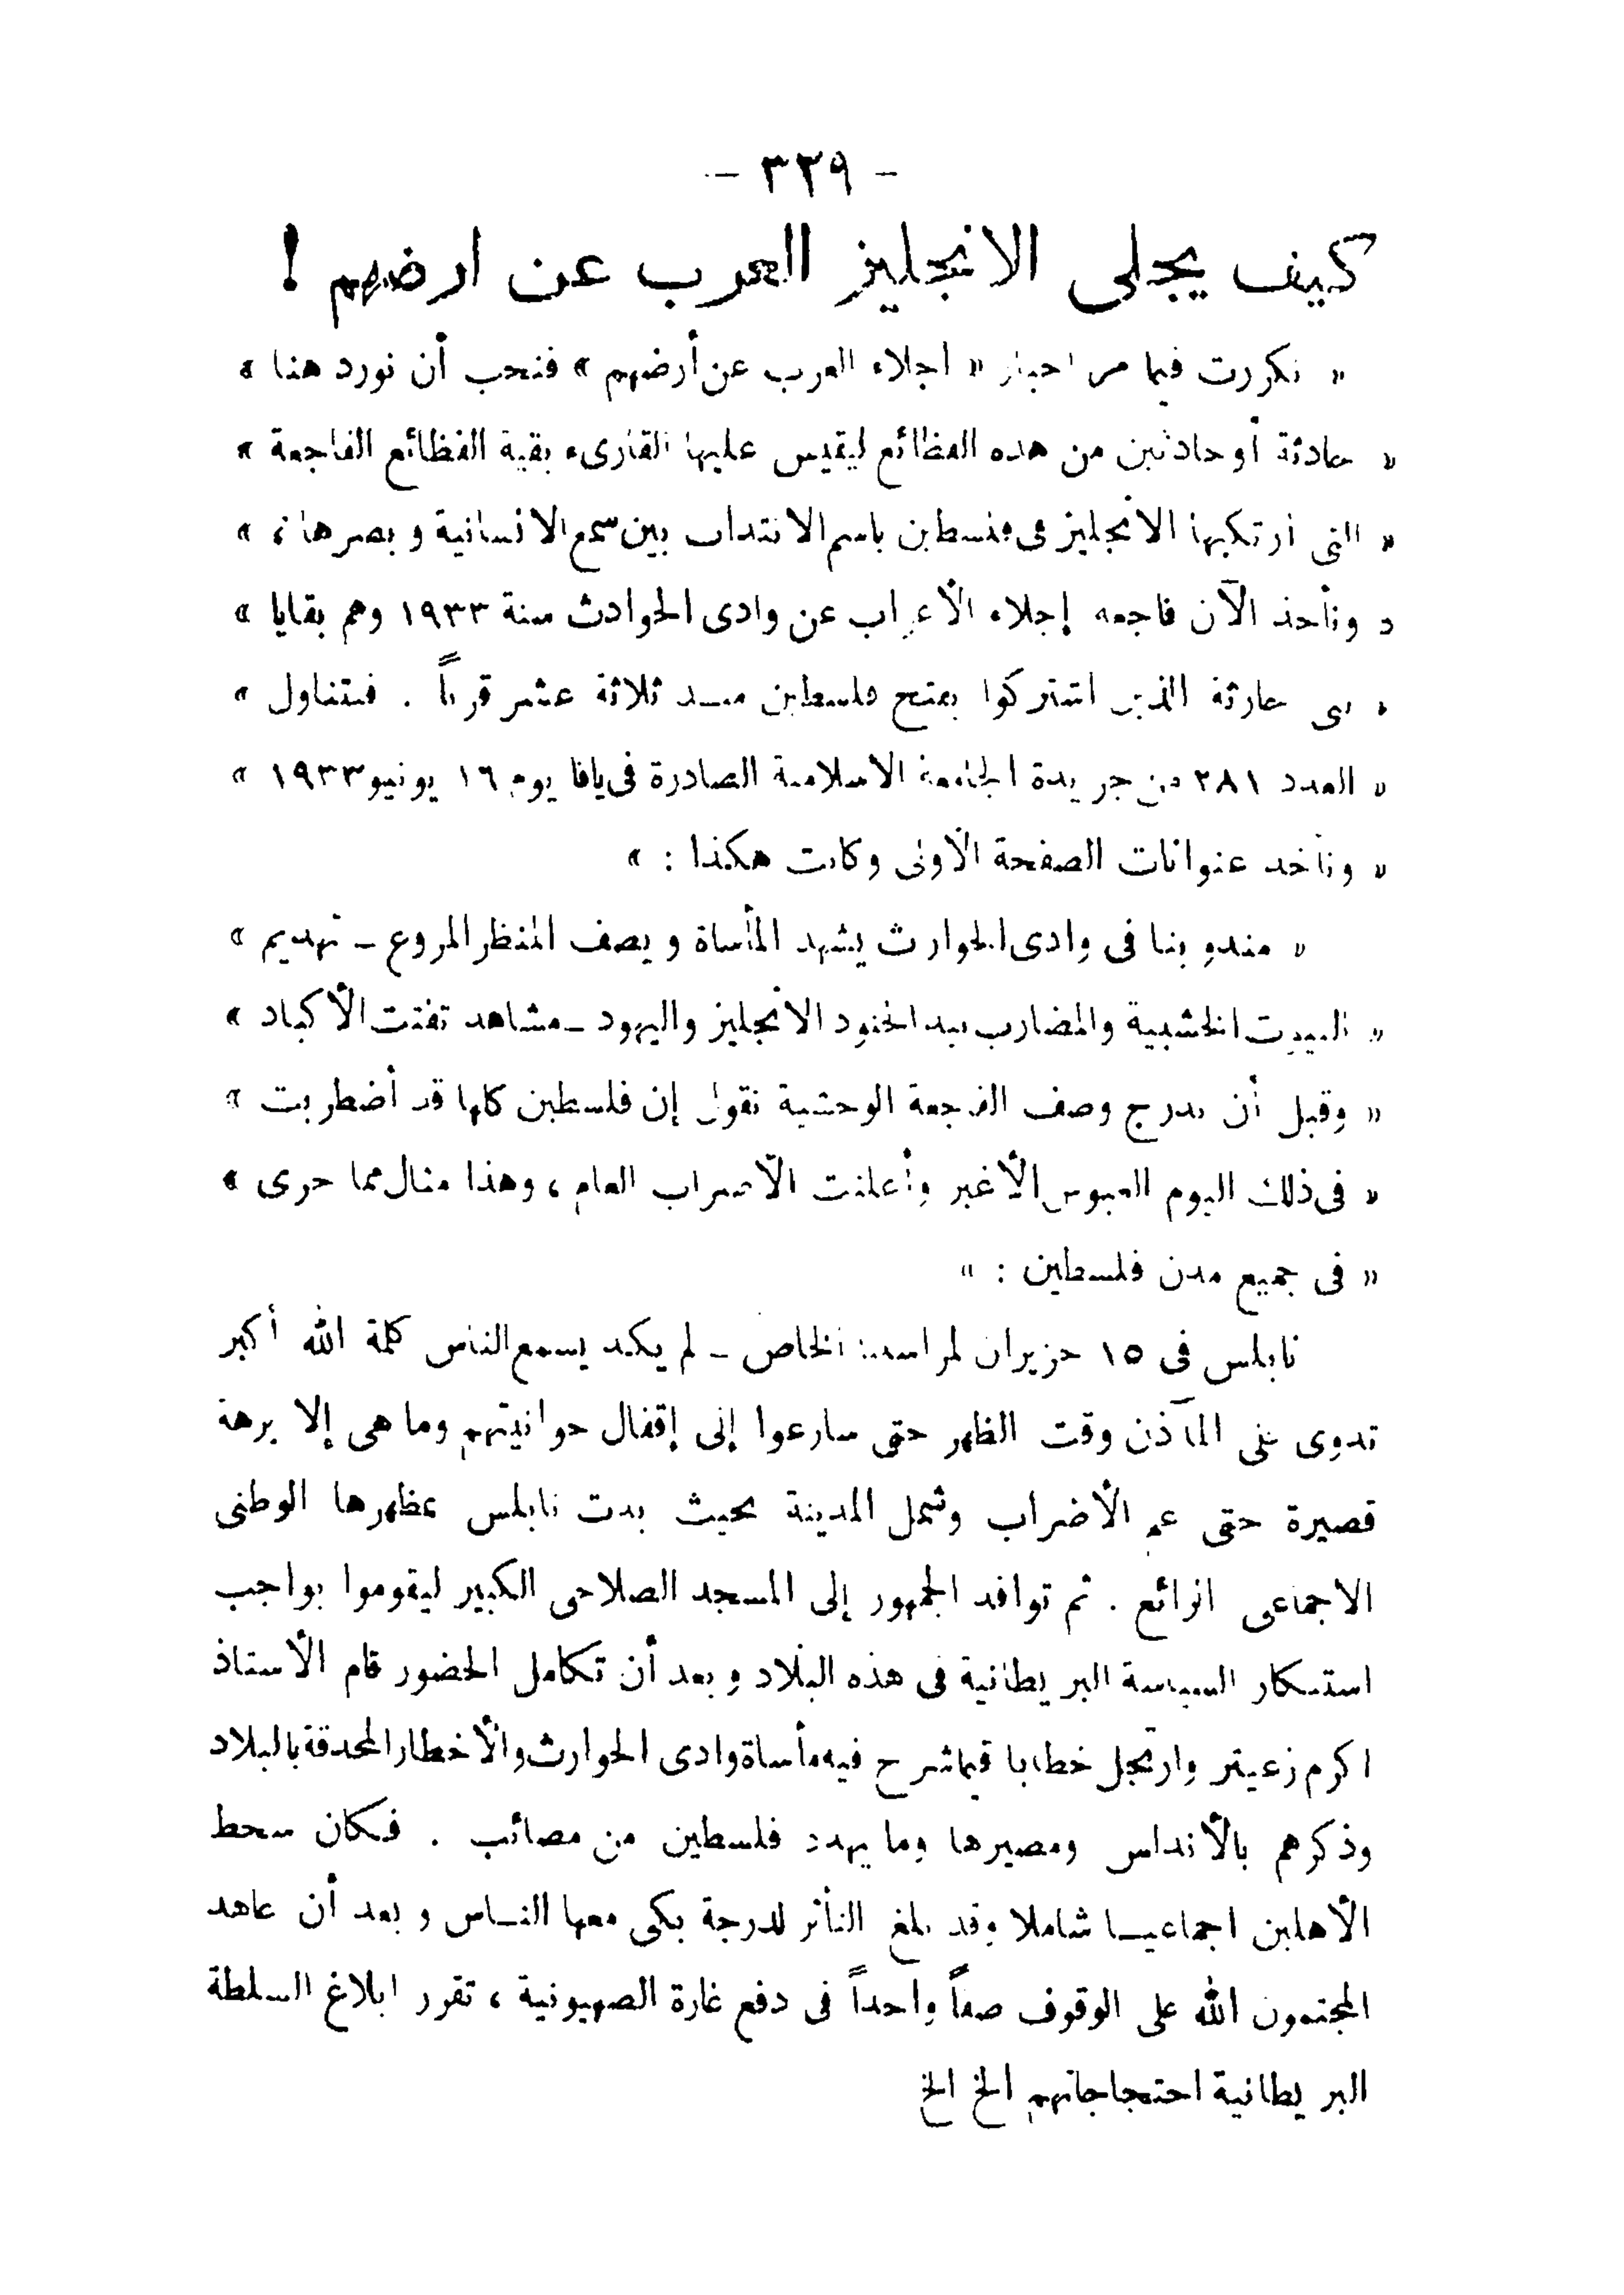 - ٣٣٩ -
كيف يجلى الانجليز العرب عن ارضهم !
« تكررت فيما مر اخبار « اجلاء العرب عن أرضهم » فنحب أن نورد هنا »
« حادثة أو حادثين من هذه الفظائع ليقيس عليها القارىء بقية الفظائع الفاجعة »
« التى ارتكبها الانجليز فى فلسطين باسم الانتداب بين سمع الانسانية وبصرها ، »
« ونأخذ الآن فاجعة إجلاء الأعراب عن وادى الحوادث سنة ١٩٣٣ وهم بقايا »
« بنى حارثة الذين اشتركوا بفتح فلسطين منـذ ثلاثة عشر قرناً . فنتناول »
« العدد ٢٨١ من جريدة الجامعة الاسلامية الصادرة فى يافا يوم ١٦ يونيو ١٩٣٣ »
« ونأخذ عنوانات الصفحة الأولى وكانت هكذا : »
« مندوبنا فى وادى الحوارث يشهد المأساة ويصف المنظر المروع ـ تهديم »
« البيوت الخشبية والمضارب بيد الجنود الانجليز واليهود ـ مشاهد تفتت الأكباد »
« وقبل أن ندرج وصف الفجعة الوحشية نقول إن فلسطين كلها قد أضطربت »
« فى ذلك اليوم العبوس الأغبر وأعلنت الأضراب العام ، وهذا مثال مما جرى »
« فى جميع مدن فلسطين : »
نابلس فى ١٥ حزيران لمراسلنا الخاص ـ لم يكد يسمع الناس كلمة الله أكبر
تدوى على المآذن وقت الظهر حتى سارعوا إلى إقفال حوانيتهم وما هى إلا برهة
قصيرة حتى عم الأضراب وشمل المدينة بحيث بدت نابلس بمظهرها الوطنى
الاجماعى الرائع . ثم توافد الجمهور إلى المسجد الصلاحى الكبير ليقوموا بواجب
استنكار السياسة البريطانية فى هذه البلاد وبعد أن تكامل الحضور قام الأستاذ
اكرم زعيتر وارتجل خطابا قيما شرح فيه مأساة وادى الحوارث والأخطار المحدقة بالبلاد
وذكرهم بالأندلس ومصيرها وما يهدد فلسطين من مصائب . فكان سخط
الأهلين اجماعيـا شاملا وقد بلغ التأثر لدرجة بكى معها النـاس وبعد أن عاهد
المجتمعون الله على الوقوف صفاً واحداً فى دفع غارة الصهيونية ، تقرر ابلاغ السلطة
البريطانية احتجاجاتهم الخ الخ